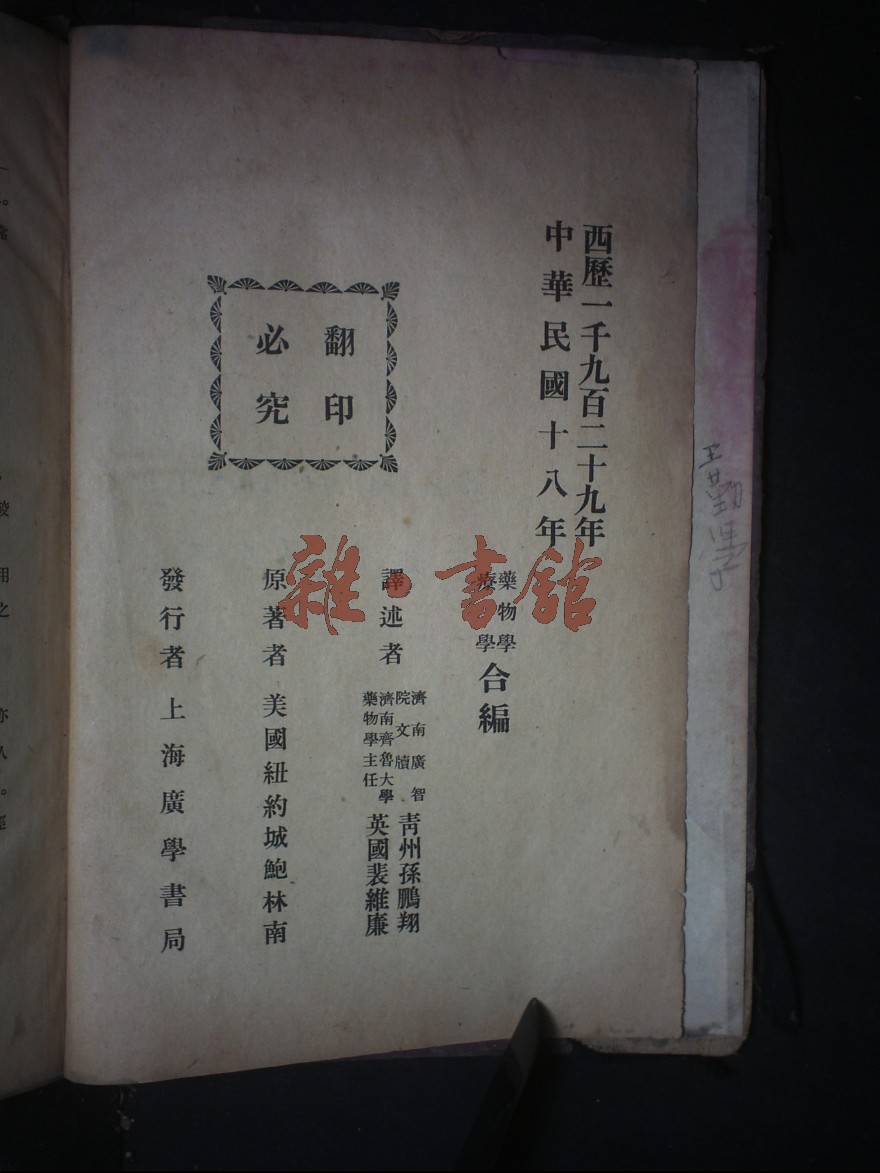 西歷一千九百二十九年
中華民國十八年
藥物學
療學
合編
譯述者
濟南廣智
院文牘
青州孫鵬翔
濟南齊魯大學
藥物學主任
英國裴維廉
原著者 美國紐約城鮑林南
發行者 上海廣學書局
翻印
必究
雜·書館